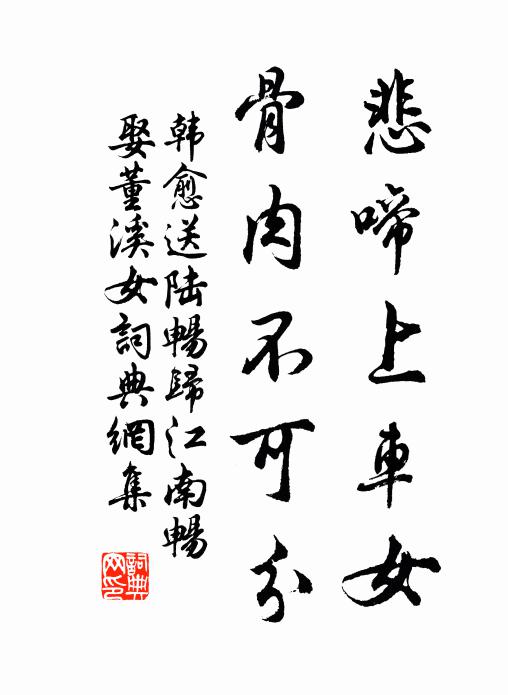 悲啼上車女
骨肉不可分
韩愈送陆暢歸江南暢
娶董溪女詞典網集
詞典网印